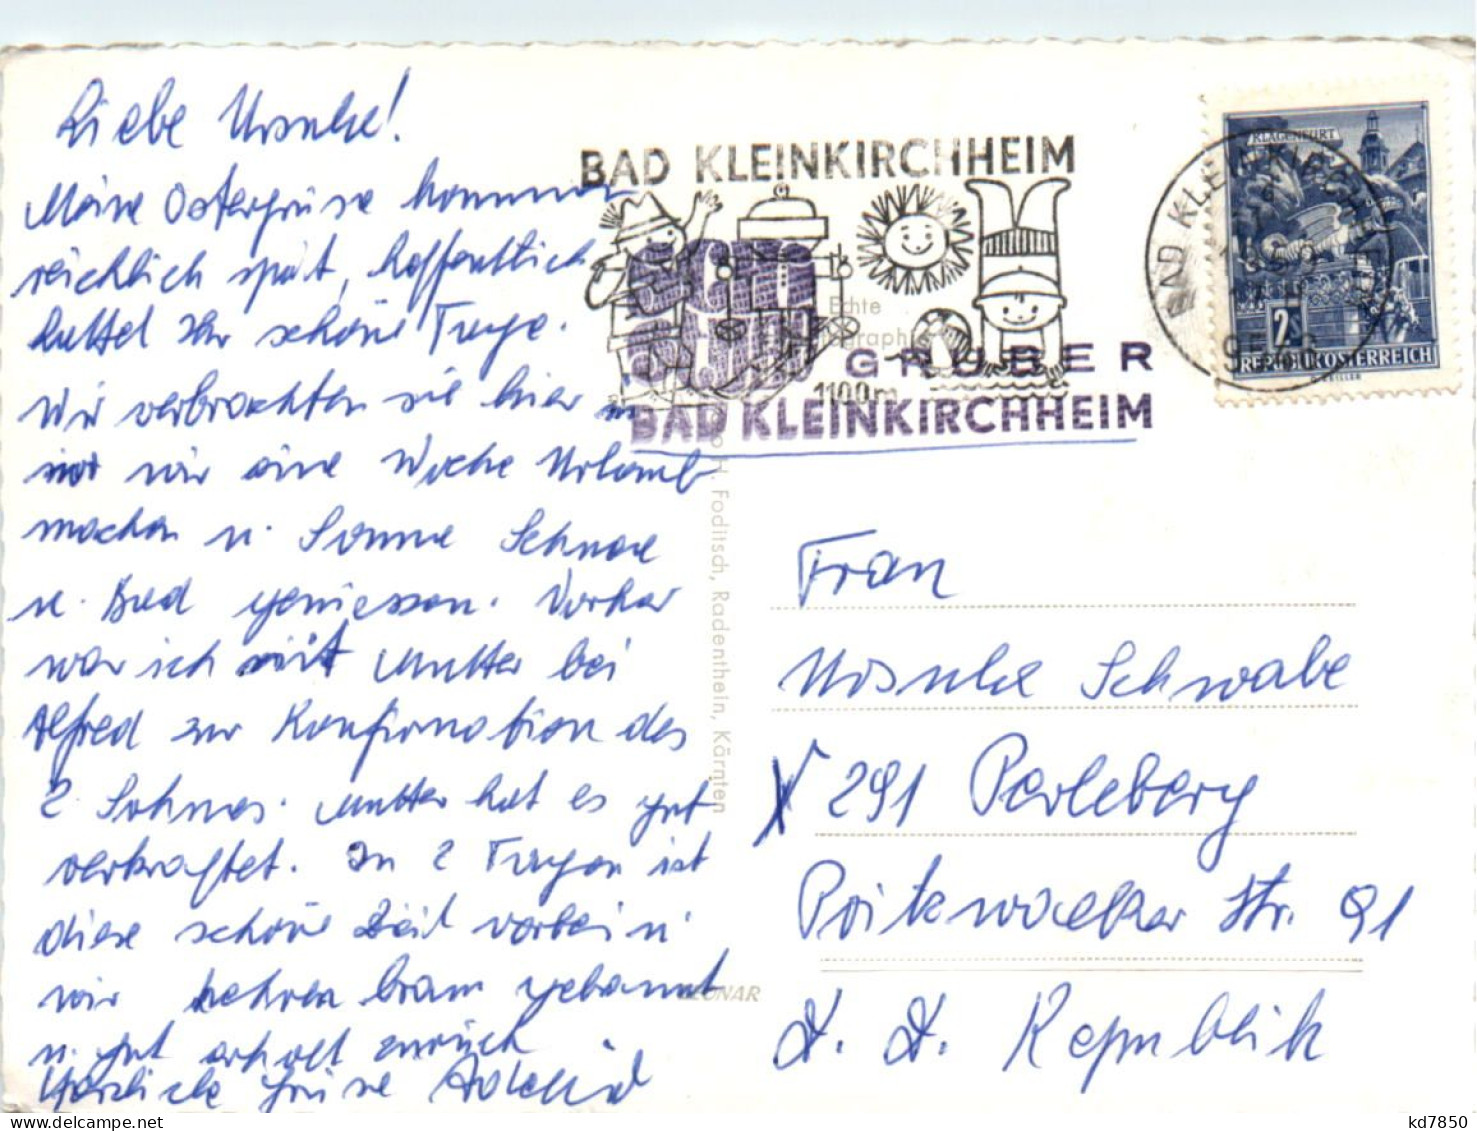 Liebe Ursula!
Meine Ostergrüsse kommen
reichlich spät, hoffentlich
hattet Ihr schöne Tage.
Wir verbrachten sie hier
wo wir eine Woche Urlaub
machen u. Sonne Schnee
u. Bad geniessen. Vorher
war ich mit Mutter bei
Alfred zur Konfirmation des
2. Sohnes. Mutter hat es gut
verkraftet. In 2 Tagen ist
diese schöne Zeit vorbei u
wir kehren braun gebrannt
u. gut erholt zurück
Herzliche Grüsse Adelheid
BAD KLEINKIRCHHEIM
1100m
Echte
GRUBER
BAD KLEINKIRCHHEIM
H. Foditsch, Radenthein, Kärnten
KLAGENFURT
2 S
REPUBLIK ÖSTERREICH
BAD KLEINKIRCHHEIM
9546
Frau
Ursula Schwabe
X 291 Perleberg
Pritzwalker Str. 91
D. D. Republik
kd7850